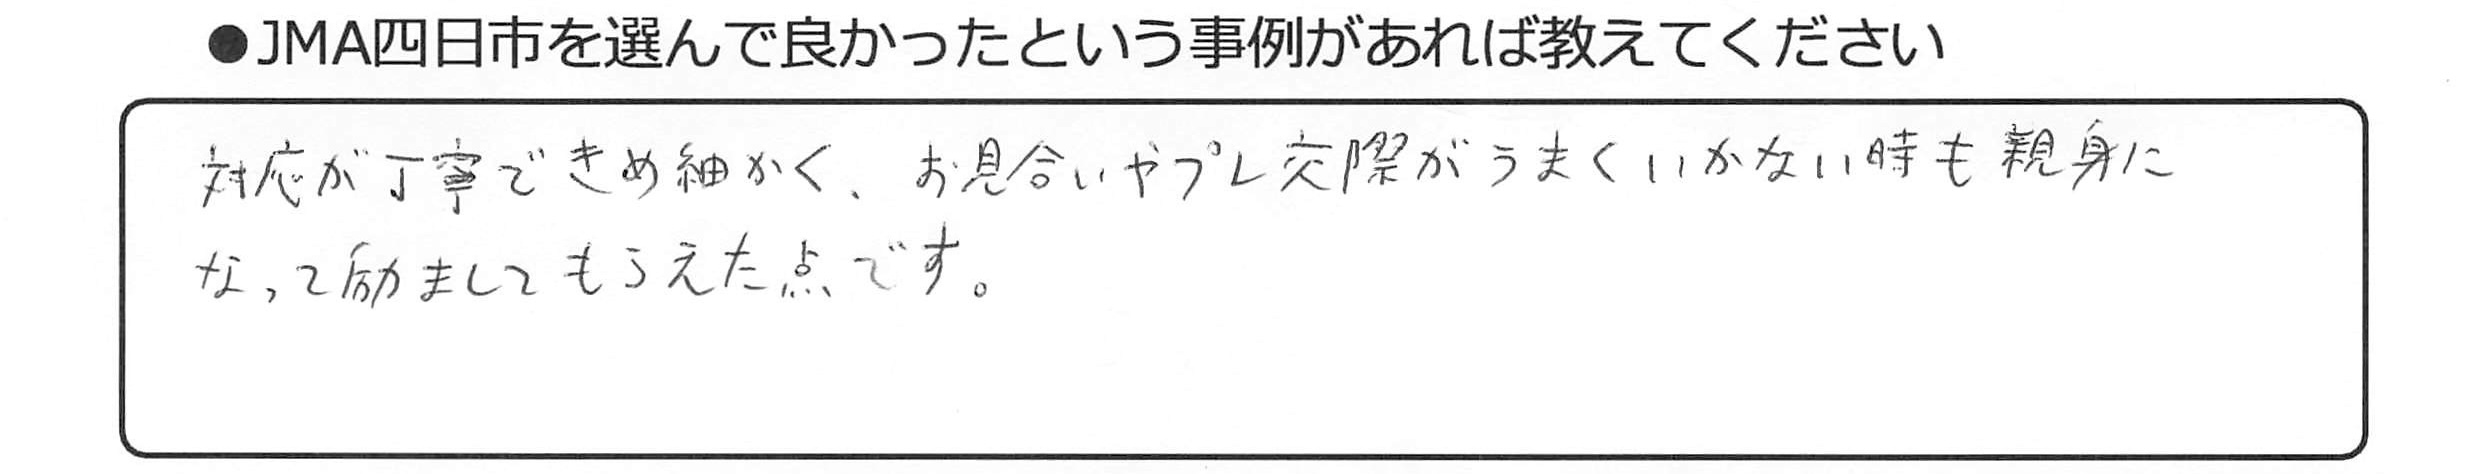 ●JMA四日市を選んで良かったという事例があれば教えてください
対応が丁寧できめ細かく、お見合いやプレ交際がうまくいかない時も親身に
なって励ましてもらえた点です。